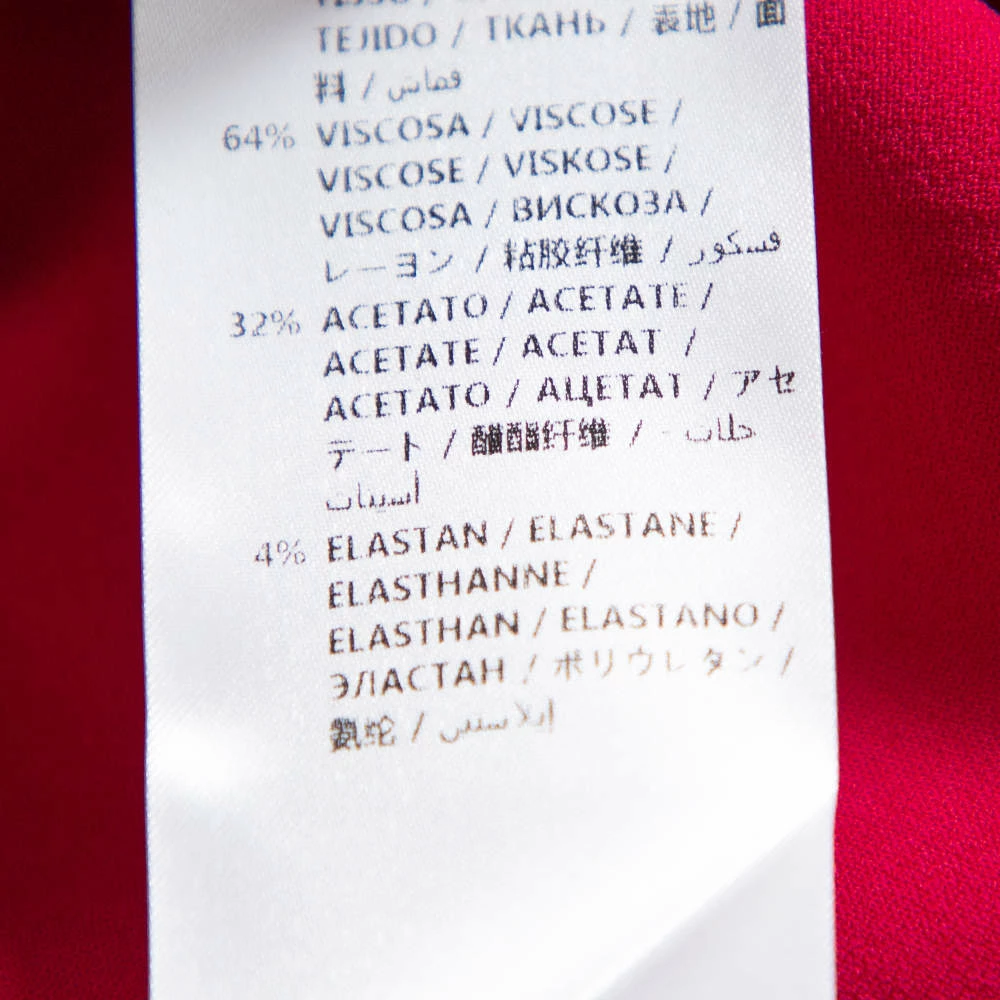 TEJIDO / ТКАНЬ / 表地 / 面
料 / قماش
64% VISCOSA / VISCOSE /
VISCOSE / VISKOSE /
VISCOSA / ВИСКОЗА /
レーヨン / 粘胶纤维 / فسكور
32% ACETATO / ACETATE /
ACETATE / ACETAT /
ACETATO / АЦЕТАТ / アセ
テート / 醋酯纤维 / - خلات
أسيتات
4% ELASTAN / ELASTANE /
ELASTHANNE /
ELASTHAN / ELASTANO /
ЭЛАСТАН / ポリウレタン /
氨纶 /